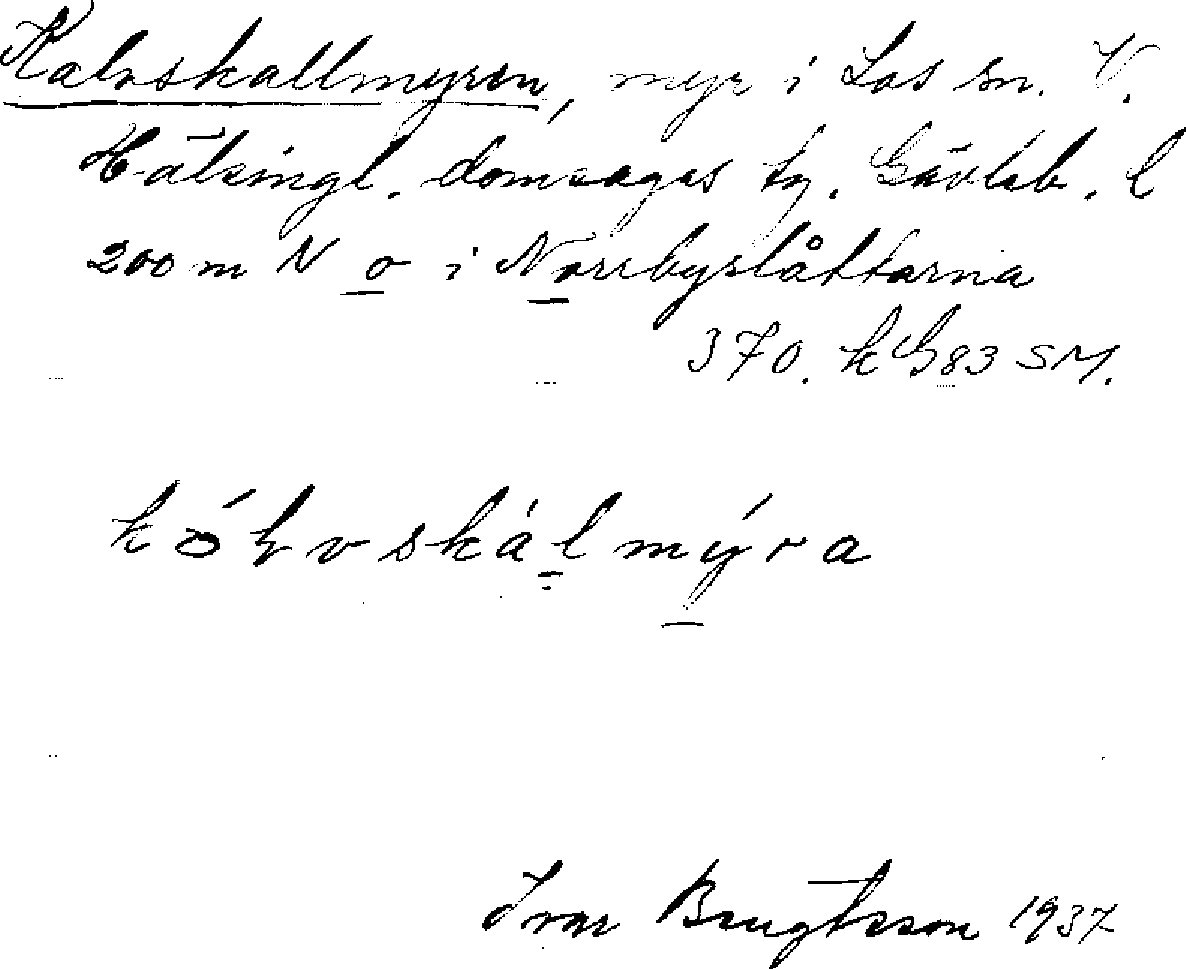 Kalvskallmyren, myr i Los sn. V.
Hälsingl. domsagas tg. Gävleb. l
200 m N o i Norrbyslåttarna
370. k G 83 SM.
kóɫvskálmýra
Ivar Bengtsson 1937